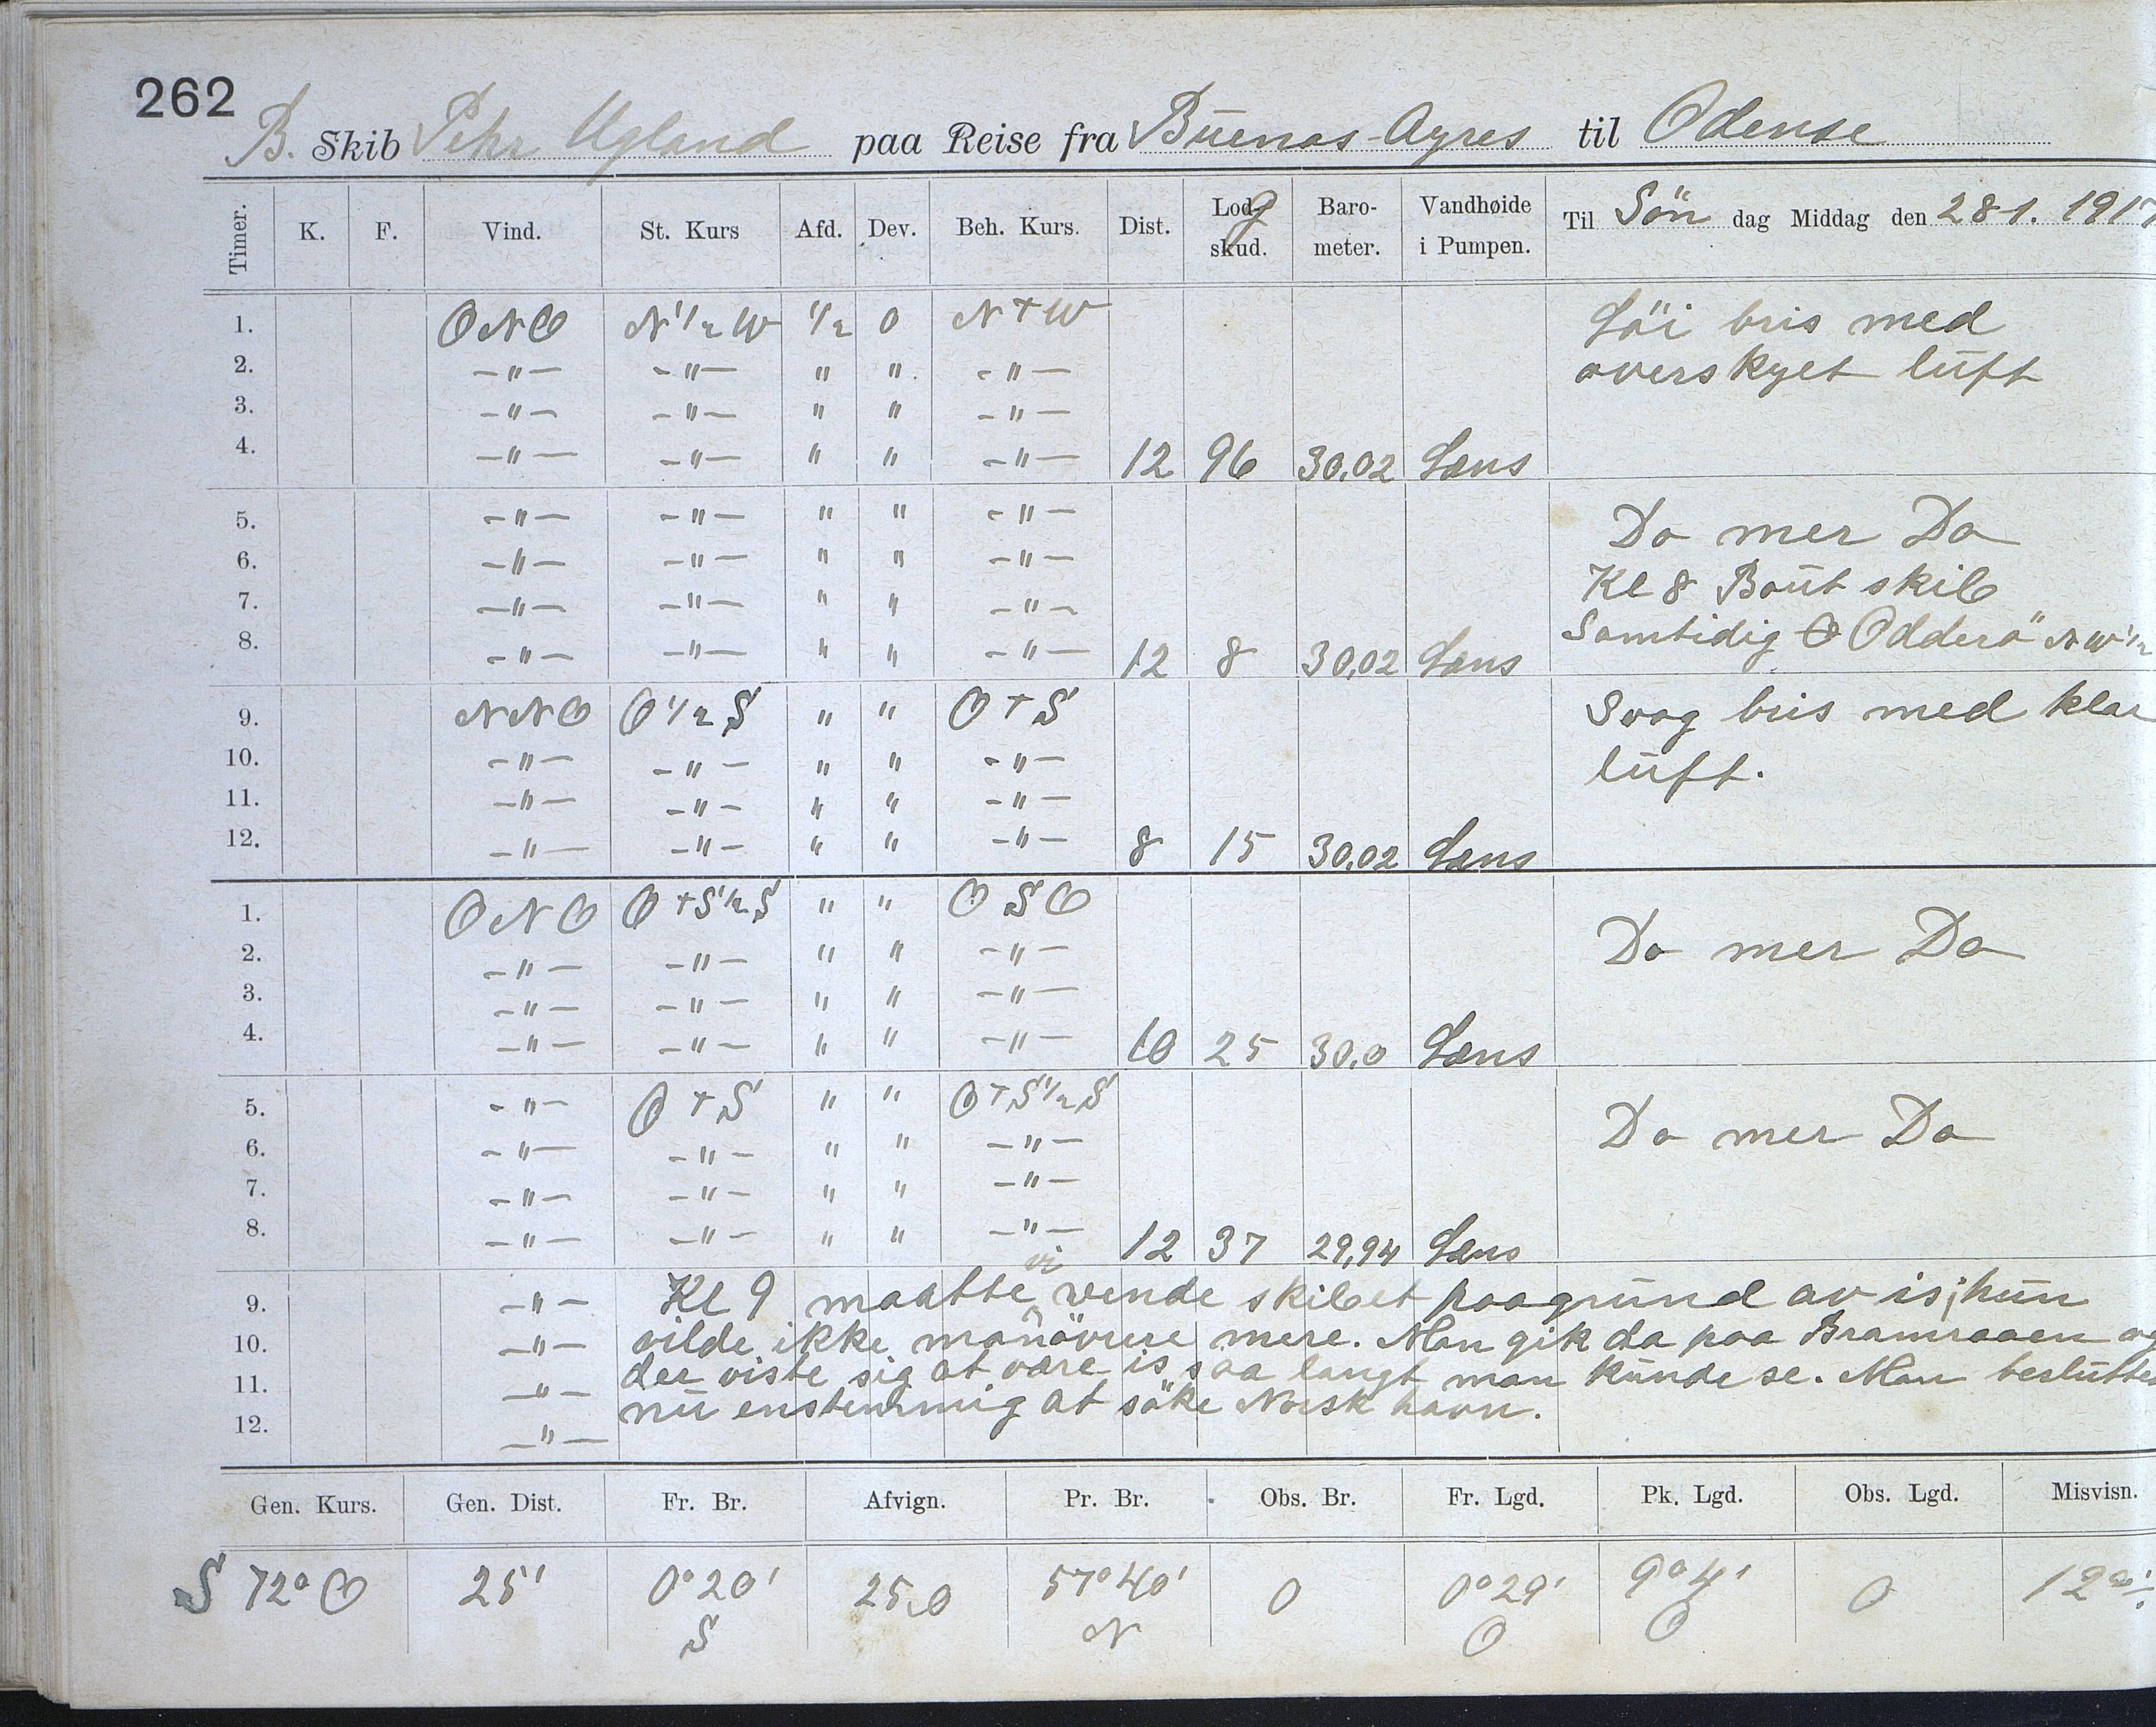 262
B. Skib Pehr Ugland paa Reise fra Buenos-Ayres til Odense
Timer. K. F. Vind. St. Kurs Afd. Dev. Beh. Kurs. Dist. Lodg skud. Baro-meter. Vandhøide i Pumpen. Til Sön dag Middag den 28 1. 1917
1. ONO N 1/2 W 1/2 0 N+W Löi bris med
2. -"- -"- " " -"- overskyet luft
3. -"- -"- " " -"-
4. -"- -"- " " -"- 12 96 30,02 Læns
5. -"- -"- " " -"- Do mer Do
6. -"- -"- " " -"- Kl 8 Bout skib
7. -"- -"- " " -"- Samtidig Odderö NW 1/2
8. -"- -"- " " -"- 12 8 30,02 Læns
9. NNO O 1/2 S " " O+S Svag bris med klar
10. -"- -"- " " -"- luft.
11. -"- -"- " " -"-
12. -"- -"- " " -"- 8 15 30,02 Læns
1. ONO O+S 1/2 S " " OSO
2. -"- -"- " " -"- Do mer Do
3. -"- -"- " " -"-
4. -"- -"- " " -"- 10 25 30,0 Læns
5. -"- O+S " " O+S 1/2 S
6. -"- -"- " " -"- Do mer Do
7. -"- -"- " " -"-
8. -"- -"- " " -"- 12 37 29,94 Læns
9. -"- Kl 9 maatte vi vende skibet paagrund av is; hun
10. -"- vilde ikke manövrere mere. Man gik da paa Bramraaen og
11. -"- der viste sig at være is saa langt man kunde se. Man besluttet
12. -"- nu enstemmig at söke Norsk havn.
Gen. Kurs. Gen. Dist. Fr. Br. Afvign. Pr. Br. Obs. Br. Fr. Lgd. Pk. Lgd. Obs. Lgd. Misvisn.
S 72° O 25' 0° 20' S 25,0 57° 40' N 0 0° 29' O 9° 4' O 0